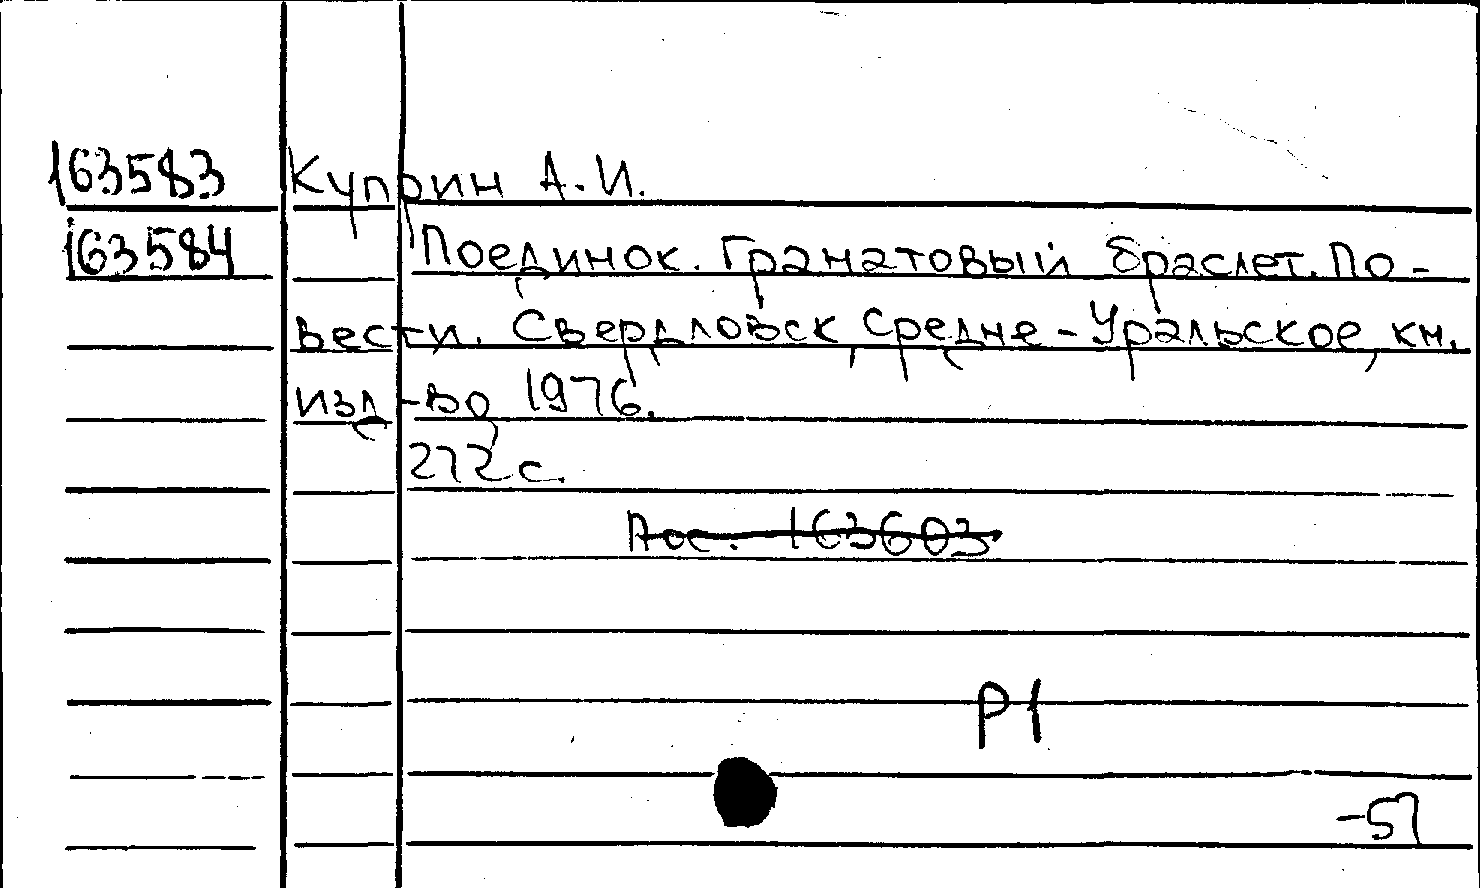 163583 Куприн А.И.
163584 Поединок. Гранатовый браслет. По-
вести. Свердловск, Средне-Уральское, кн.
изд-во 1976.
272с.
Рос. 163603
Р1
-57